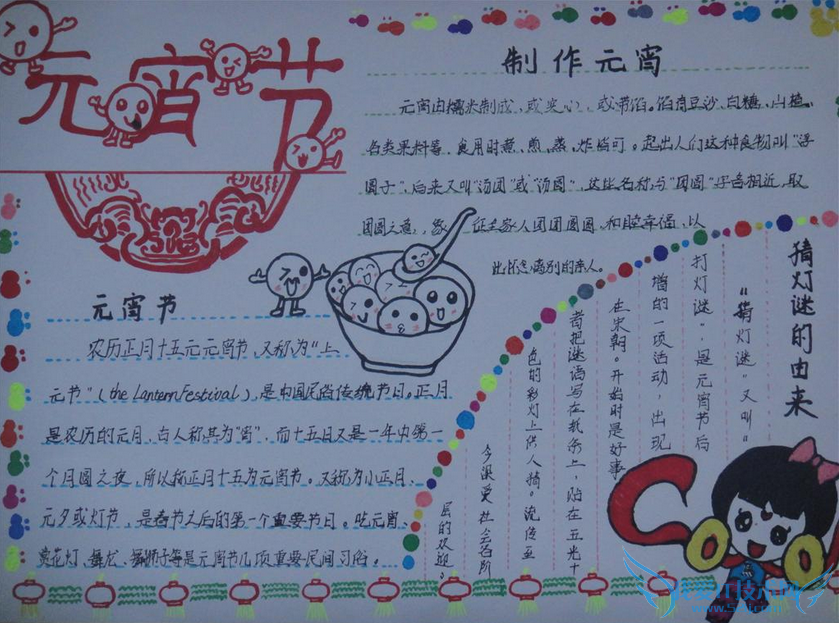 元宵节
制作元宵
元宵由糯米制成,或实心,或带馅。馅有豆沙、白糖、山楂、
各类果料等,食用时煮、煎、蒸、炸皆可。起出人们这种食物叫"浮
圆子",后来又叫"汤团"或"汤圆",这些名称与"团圆"字音相近,取
团圆之意,象征全家人团团圆圆,和睦幸福,以
此怀念离别的亲人。
元宵节
农历正月十五元元宵节,又称为"上
元节"(the Lantern Festival),是中国民俗传统节日。正月
是农历的元月,古人称其为"宵",而十五日又是一年中第一
个月圆之夜,所以称正月十五为元宵节。又称为小正月、
元夕或灯节,是春节之后的第一个重要节日。吃元宵、
赏花灯、舞龙、舞狮子等是元宵节几项重要民间习俗。
猜灯谜的由来
"猜灯谜"又叫"
打灯谜",是元宵节后
增的一项活动,出现
在宋朝。开始时是好事
者把谜语写在纸条上,贴在五光十
色的彩灯上供人猜。流传至
今深受社会各阶
层的欢迎。